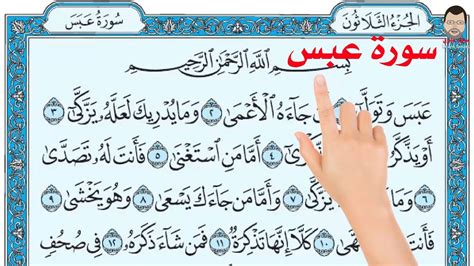 الجُزءُ الثَّلَاثُونَ
سُورَةُ عَبَسَ
سورة عبس
بِسْمِ اللَّهِ الرَّحْمَٰنِ الرَّحِيمِ
عَبَسَ وَتَوَلَّىٰ جَاءَهُ الْأَعْمَىٰ ٢ وَمَا يُدْرِيكَ لَعَلَّهُ يَزَّكَّىٰ ٣
أَوْ يَذَّكَّرُ ٤ أَمَّا مَنِ اسْتَغْنَىٰ ٥ فَأَنتَ لَهُ تَصَدَّىٰ
٦ يَزَّكَّىٰ ٧ وَأَمَّا مَن جَاءَكَ يَسْعَىٰ ٨ وَهُوَ يَخْشَىٰ ٩
فَأَنتَ ١٠ كَلَّا إِنَّهَا تَذْكِرَةٌ ١١ فَمَن شَاءَ ذَكَرَهُ ١٢ فِي صُحُفٍ